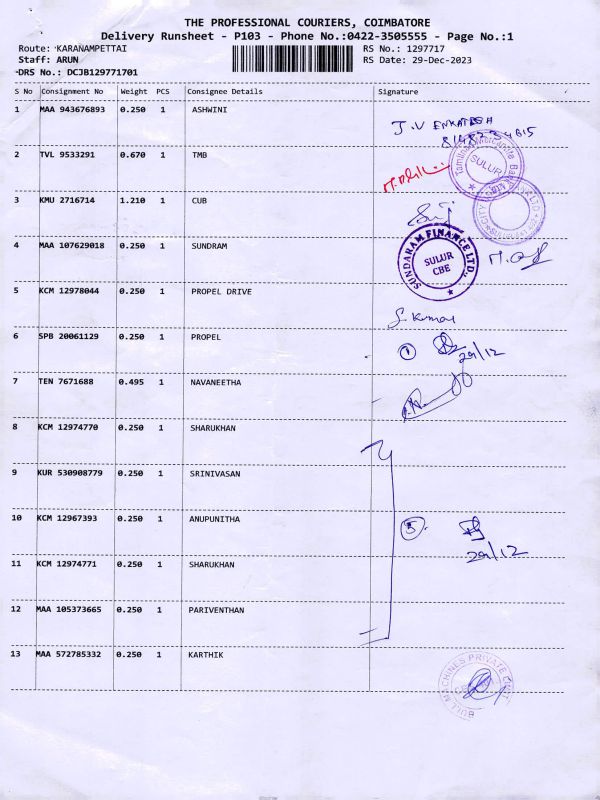 THE PROFESSIONAL COURIERS, COIMBATORE
Delivery Runsheet - P103 - Phone No.:0422-3505555 - Page No.:1
Route: KARANAMPETTAI RS No.: 1297717
Staff: ARUN RS Date: 29-Dec-2023
DRS No.: DCJB129771701
S No Consignment No Weight PCS Consignee Details Signature
1 MAA 943676893 0.250 1 ASHWINI
J.V ENKATESH
2 TVL 9533291 0.670 1 TMB
SULUR
3 KMU 2716714 1.210 1 CUB
4 MAA 107629018 0.250 1 SUNDRAM
SUNDARAM FINANCE LTD.
SULUR
CBE
5 KCM 12978044 0.250 1 PROPEL DRIVE
S. Kumar
6 SPB 20061129 0.250 1 PROPEL
1 29/12
7 TEN 7671688 0.495 1 NAVANEETHA
8 KCM 12974770 0.250 1 SHARUKHAN
9 KUR 530908779 0.250 1 SRINIVASAN
10 KCM 12967393 0.250 1 ANUPUNITHA
5. 29/12
11 KCM 12974771 0.250 1 SHARUKHAN
12 MAA 105373665 0.250 1 PARIVENTHAN
13 MAA 572785332 0.250 1 KARTHIK
BULL MACHINES PRIVATE LIMITED